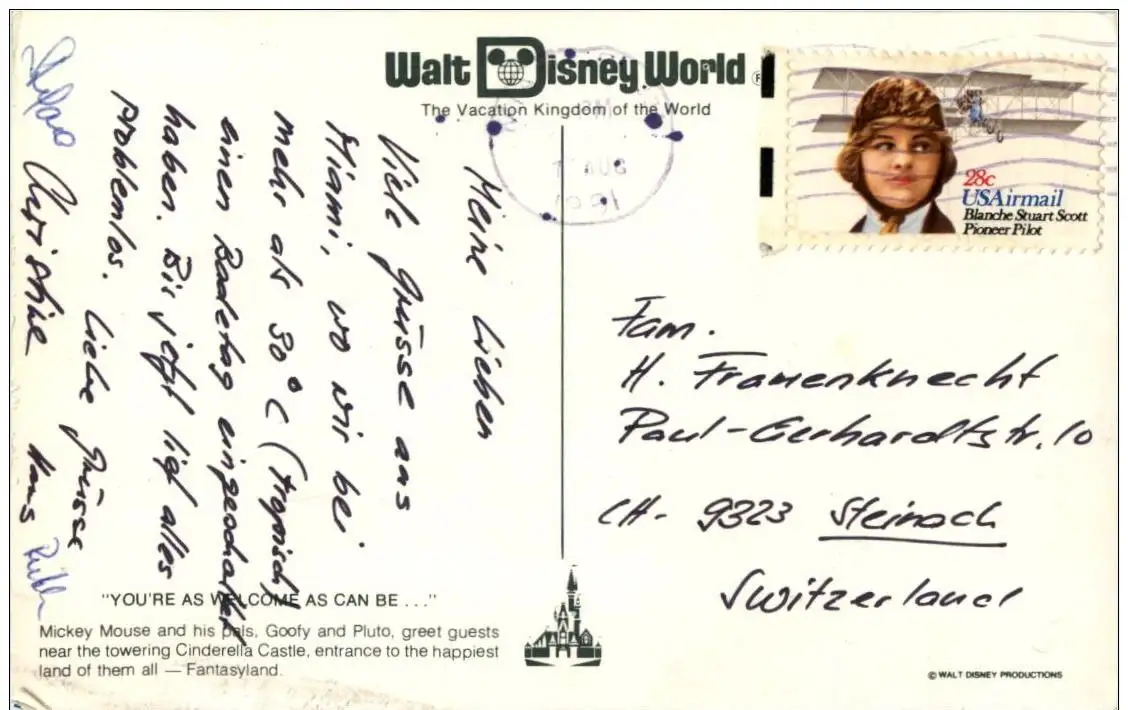 Walt Disney World
The Vacation Kingdom of the World
7 AUG
1981
28c
USAirmail
Blanche Stuart Scott
Pioneer Pilot
Meine Lieben
Viele Grüsse aus
Miami, wo wir bei
mehr als 30°C (tropisch)
einen Badetag eingeschaltet
haben. Bis jetzt lief alles
problemlos. Liebe Grüsse
Christine Hans
Ruth
Fam.
H. Frauenknecht
Paul-Gerhardtstr. 10
CH- 9323 Steinach
Switzerland
"YOU'RE AS WELCOME AS CAN BE ..."
Mickey Mouse and his pals, Goofy and Pluto, greet guests
near the towering Cinderella Castle, entrance to the happiest
land of them all — Fantasyland.
© WALT DISNEY PRODUCTIONS